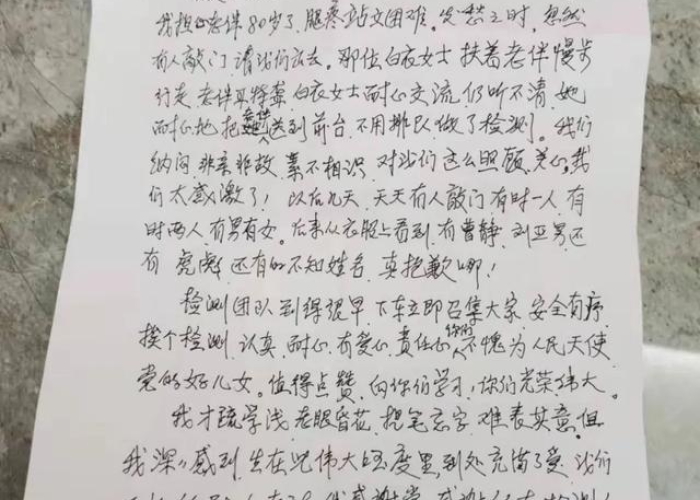 我担心老伴80岁了，腿疼站立困难。发愁之时，忽然
有人敲门，请我们出去。那位白衣女士扶着老伴慢步
行走，老伴耳聋，白衣女士耐心交流仍听不清，她
而耐心地把老伴送到前台，不用排队做了检测。我们
纳闷，非亲非故，素不相识，对我们这么照顾，关心，我
们太感激了！以后九天，天天有人敲门有时一人，有
时两人，有男有女。后来从衣服上看到，有曹静，刘亚男还
有，还有的不知姓名，真抱歉哪！
检测团队到得很早，下车立即召集大家，安全有序，
挨个检测，认真，耐心，有爱心，责任心，你们不愧为人民天使
党的好儿女。值得点赞，向你们学习，你们光荣伟大。
我才疏学浅，老眼昏花，提笔忘字，难表其意。但
我深深感到，生在伟大国度里到处充满了爱，我们
感谢党，感谢